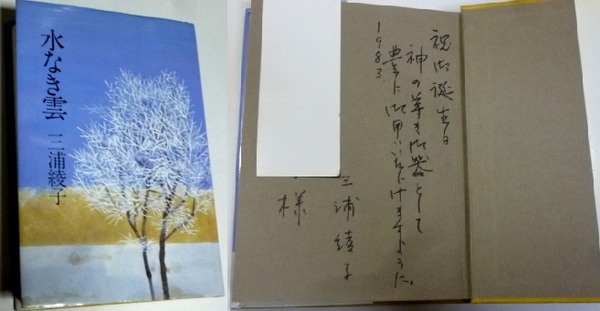 水なき雲
三浦綾子
祝御誕生日
神の尊き御器として
豊に御用いいただけますように。
1983.
三浦綾子
様